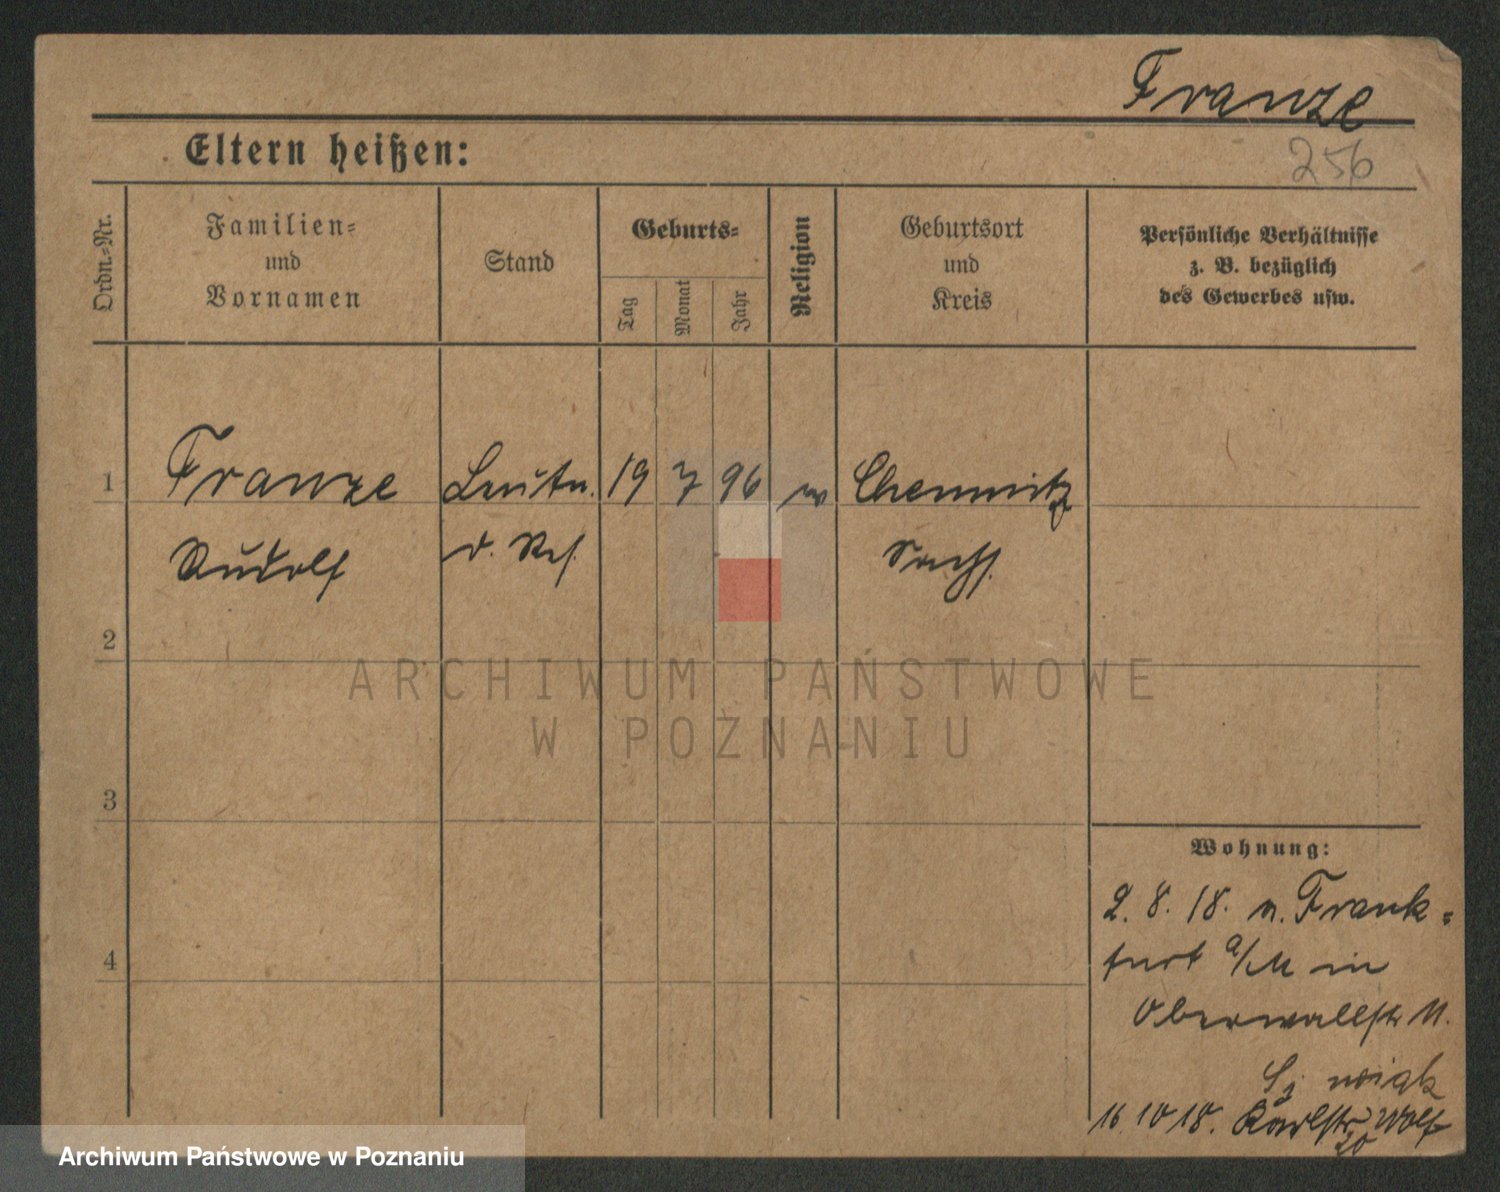 Franze
Eltern heißen:
256
Ordn.-Nr.
Familien-
und
Vornamen
Stand
Geburts-
Tag
Monat
Jahr
Religion
Geburtsort
und
Kreis
Persönliche Verhältnisse
z. B. bezüglich
des Gewerbes usw.
1
Franze Leutn. 19 7 96 Chemnitz
Rudolf d. Res. Sachs.
2
3
4
ARCHIWUM PAŃSTWOWE
W POZNANIU
Wohnung:
2. 8. 18. n. Frank-
furt a/M in
Oberwallstr 11.
16 10 18. Karlstr Wolf
20
Archiwum Państwowe w Poznaniu